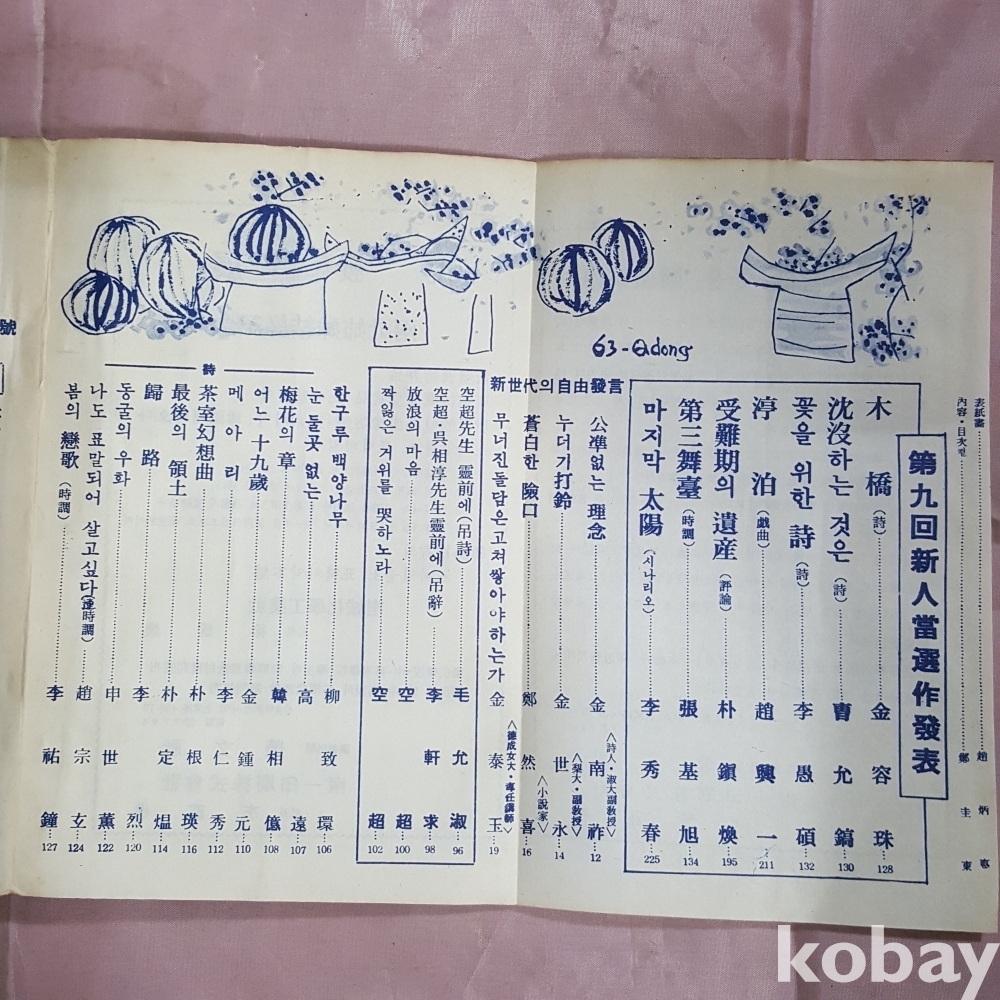 表紙畵 趙炳悳
內容·目次컽 鄭圭東
第九回新人當選作發表
木橋 (詩) 金容珠 128
沈沒하는 것은 (詩) 曺允鎬 130
꽃을 위한 詩 (詩) 李愚碩 132
渟泊 (戱曲) 趙興一 211
受難期의 遺産 (評論) 朴鎭煥 195
第三舞臺 (時調) 張基旭 134
마지막 太陽 (시나리오) 李秀春 225
63-Qdong
新世代의自由發言
公準없는 理念 金南祚 <詩人·淑大副敎授> 12
누더기打鈴 金世永 <梨大·副敎授> 14
蒼白한 險口 鄭然喜 <小說家> 16
무너진돌담은고쳐쌓아야하는가 金泰玉 <德成女大·專任講師> 19
空超先生 靈前에(吊詩) 毛允淑 96
空超·吳相淳先生靈前에(吊辭) 李軒求 98
放浪의마음 空超 100
짝잃은 거위를 哭하노라 空超 102
詩
한구루 백양나무 柳致環 106
눈 둘곳 없는 高遠 107
梅花의 章 韓相億 108
어느 十九歲 金鍾元 110
메아리 李仁秀 112
茶室幻想曲 朴根瑛 116
最後의 領土 朴定熅 114
歸路 李烈 120
동굴의 우화 申世薰 122
나도 표말되어 살고싶다(連時調) 趙宗玄 124
봄의 戀歌 (時調) 李祐鐘 127
號
kobay